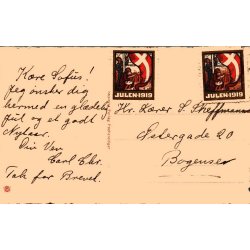 Kære Sofus!
Jeg ønsker dig
hermed en glædelig
jul og et godt
Nytaar.
Din Ven
Carl Chr.
Tak for Brevet.
JULEN·1919
JULEN·1919
Hr. Lærer S. Steffensen
Østergade 20
Bogense